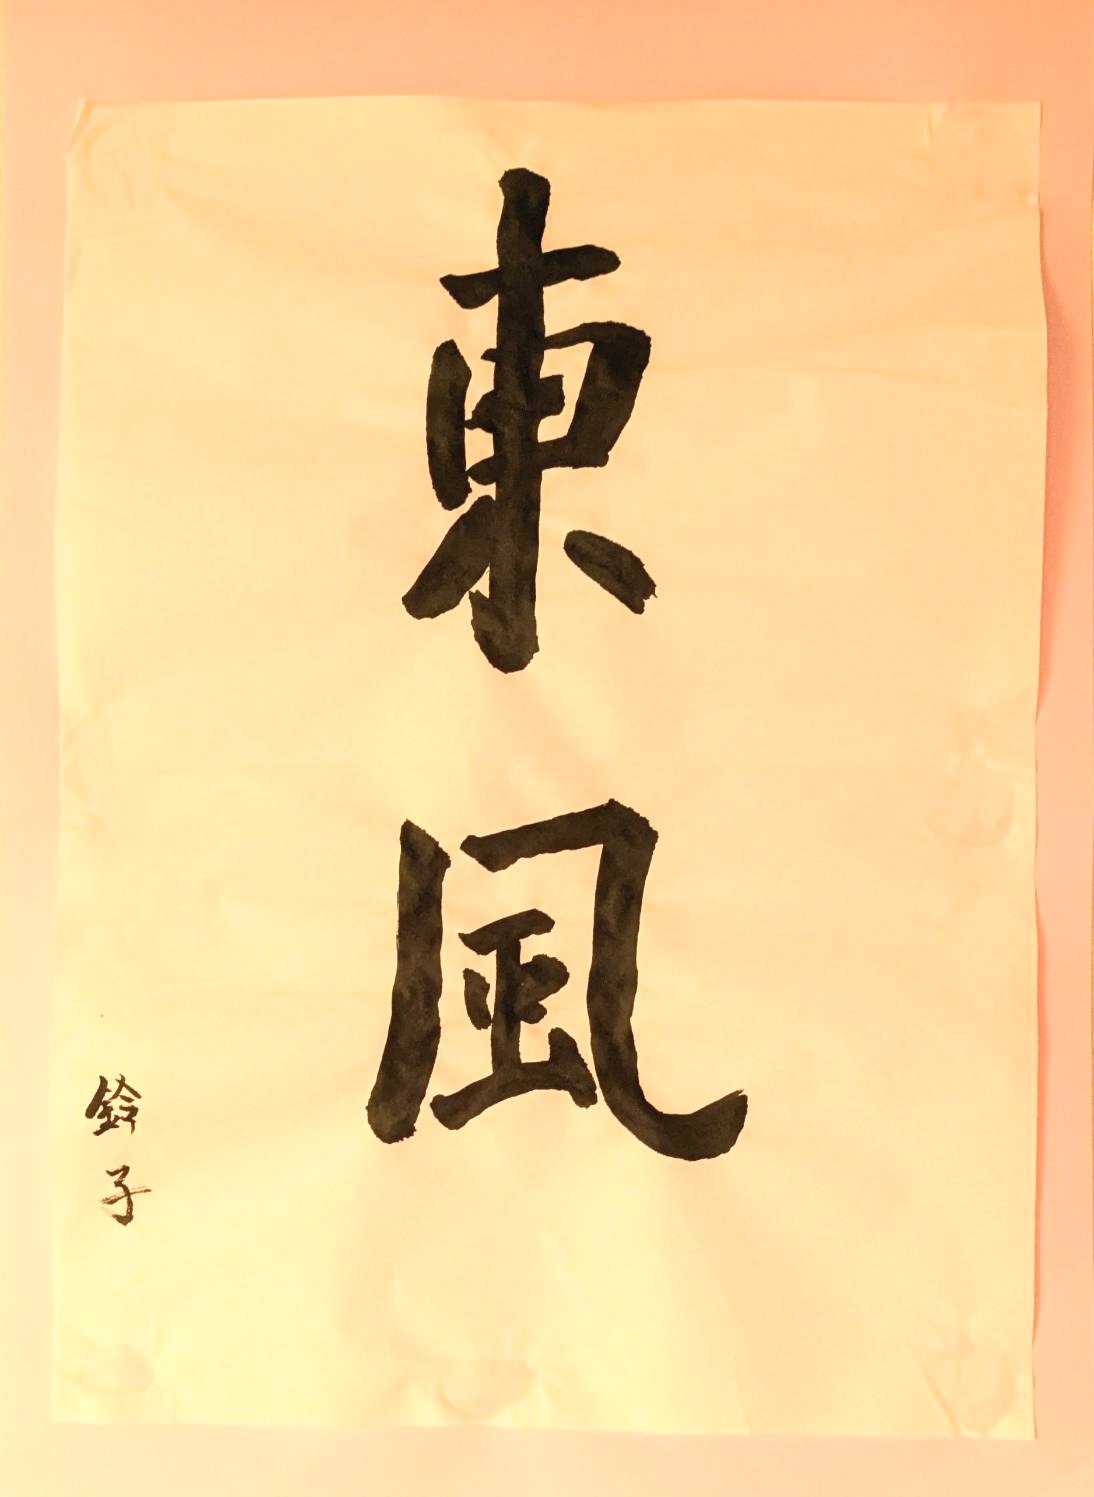 東風
鈴子